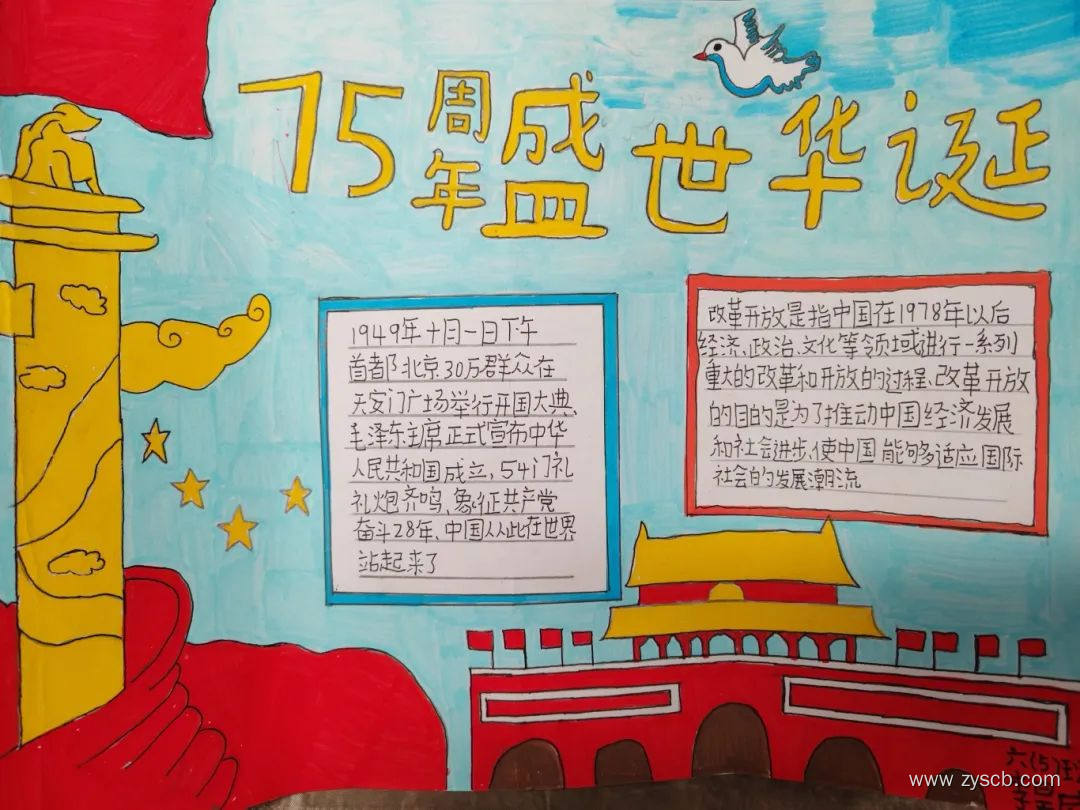 75周年盛世华诞
1949年十月一日下午
首都北京30万群众在
天安门广场举行开国大典、
毛泽东主席正式宣布中华
人民共和国成立,54门礼
礼炮齐鸣、象征共产党
奋斗28年、中国人从此在世界
站起来了
改革开放是指中国在1978年以后
经济、政治、文化等领域或进行一系列
重大的改革和开放的过程、改革开放
的目的是为了推动中国经济发展
和社会进步、使中国能够多适应国际
社会的发展潮流
六(5)班
www.zyscb.com